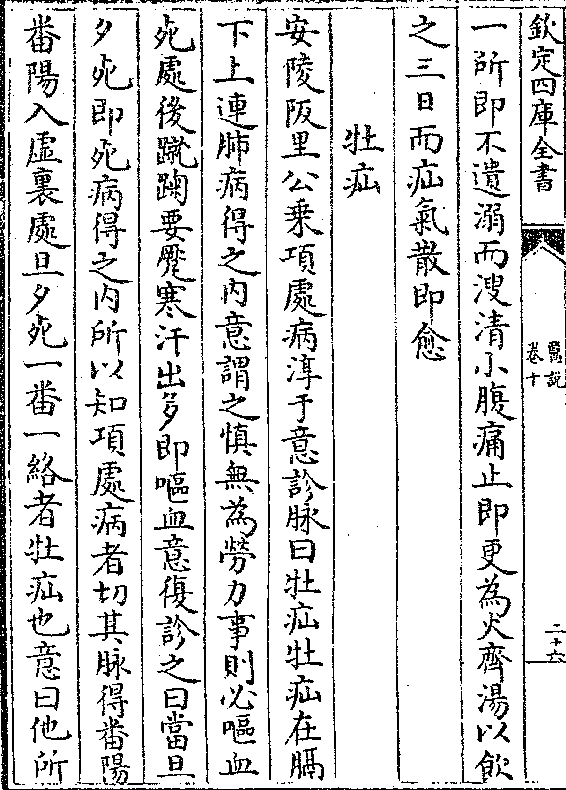 欽定四庫全書
醫說
卷十
二十六
一所即不遺溺而溲清小腹痛止即更為火齊湯以飲
之三日而疝氣散即愈
牡疝
安陵阪里公乗項處病淳于意診脉曰牡疝牡疝在膈
下上連肺病得之内意謂之慎無為勞力事則必嘔血
死處後蹴踘要蹷寒汗出多即嘔血意復診之曰當旦
夕死即死病得之内所以知項處病者切其脉得番陽
番陽入虛裏處旦夕死一番一絡者牡疝也意曰他所